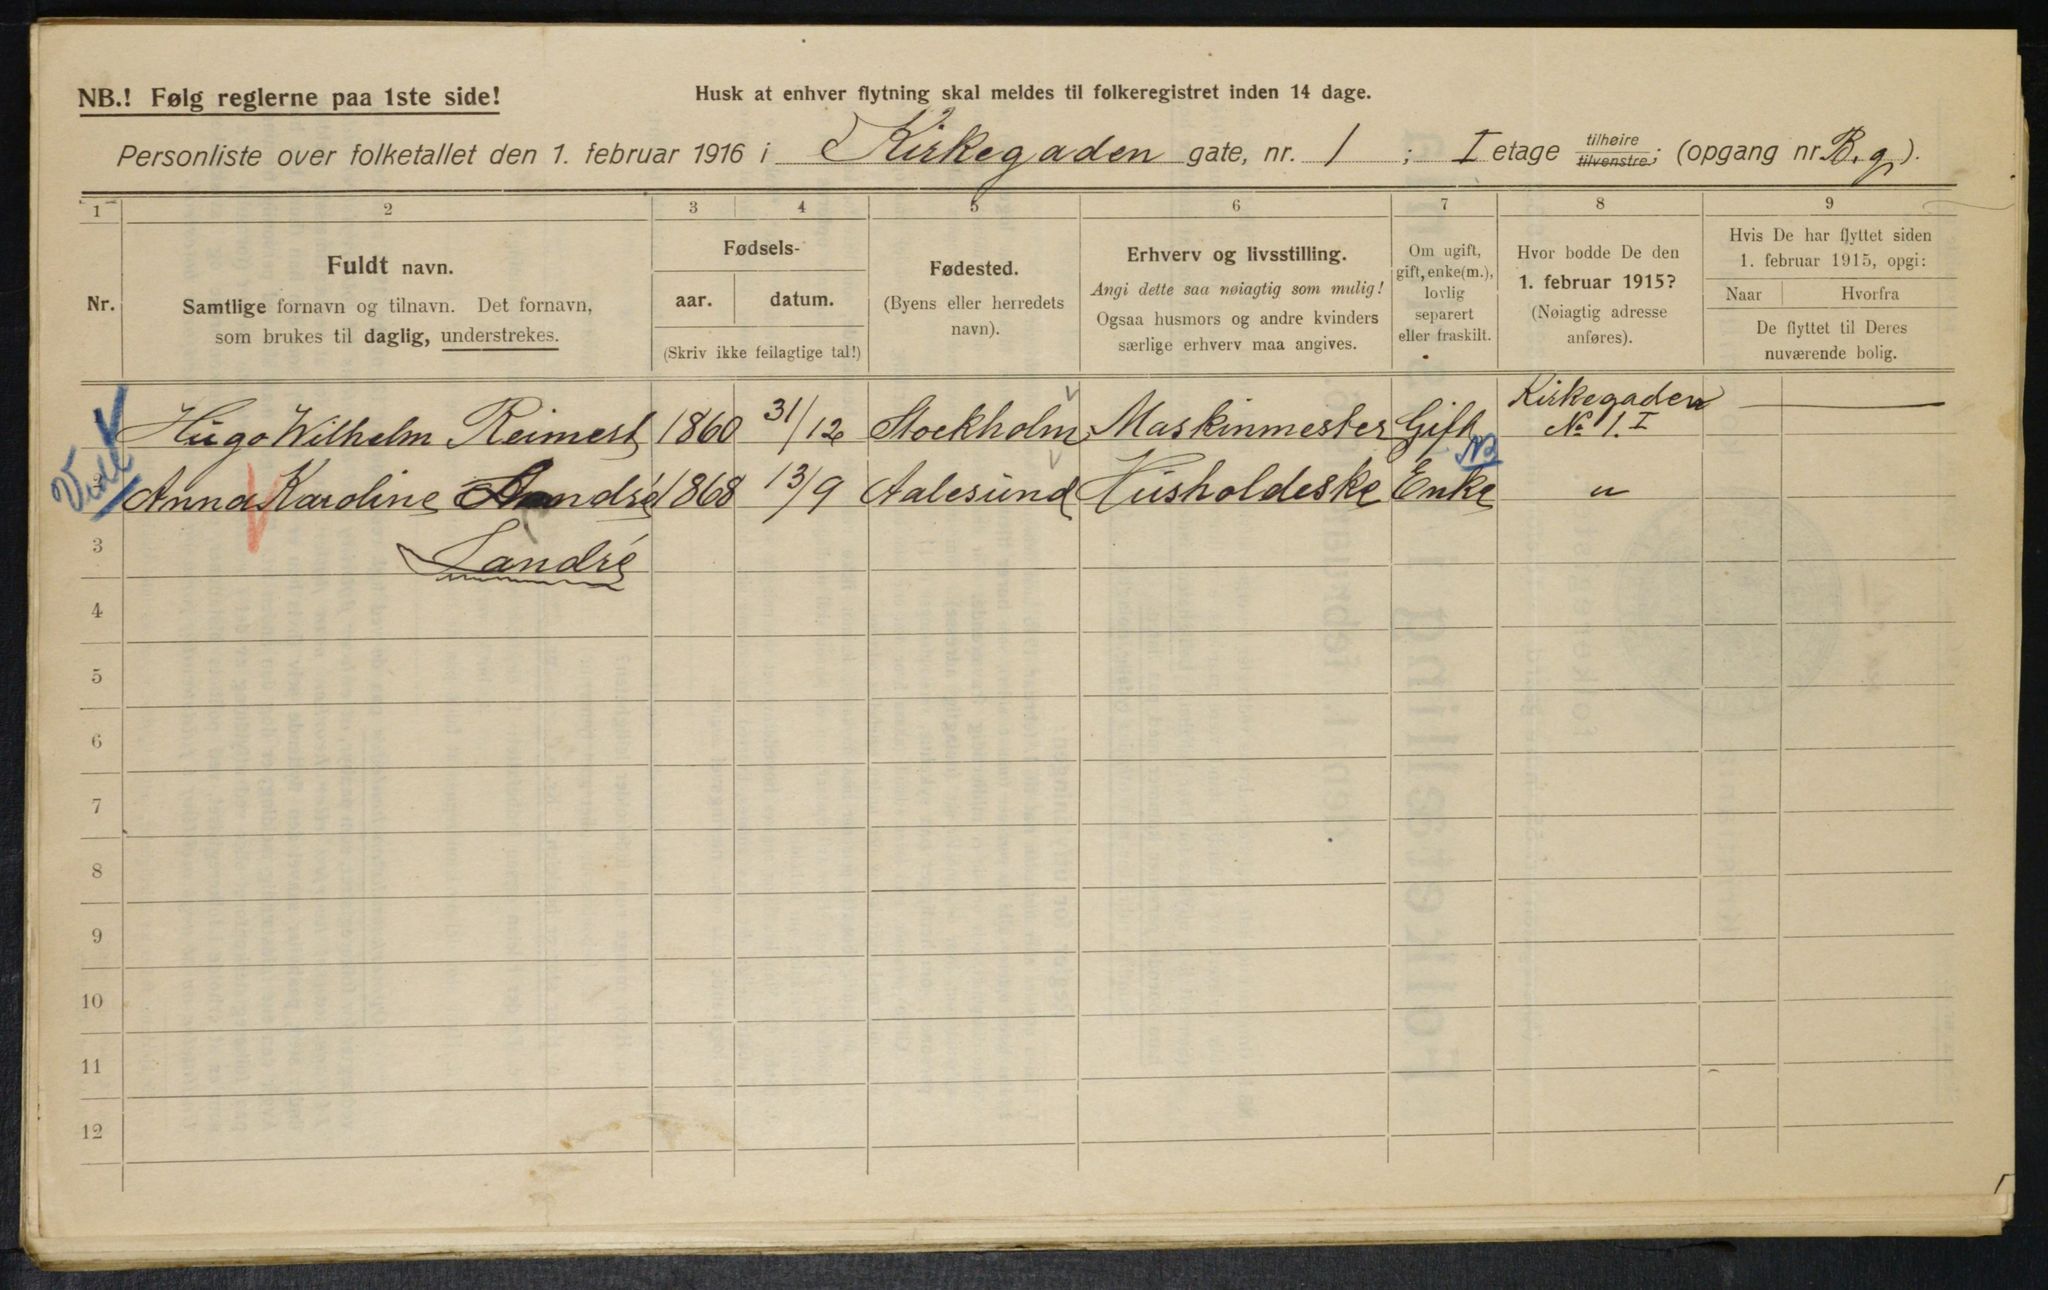 NB.! Følg reglerne paa 1ste side!
Husk at enhver flytning skal meldes til folkeregistret inden 14 dage.
Personliste over folketallet den 1. februar 1916 i Kirkegaden gate, nr. 1 ; I etage tilhøire tilvenstre; (opgang nr. B.g.).
1 2 3 4 5 6 7 8 9
Nr.
Fuldt navn.
Samtlige fornavn og tilnavn. Det fornavn,
som brukes til daglig, understrekes.
Fødsels-
aar. datum.
(Skriv ikke feilagtige tal!)
Fødested.
(Byens eller herredets
navn).
Erhverv og livsstilling.
Angi dette saa nøiagtig som mulig!
Ogsaa husmors og andre kvinders
særlige erhverv maa angives.
Om ugift,
gift, enke(m.),
lovlig
separert
eller fraskilt.
Hvor bodde De den
1. februar 1915?
(Nøiagtig adresse
anføres).
Hvis De har flyttet siden
1. februar 1915, opgi:
Naar Hvorfra
De flyttet til Deres
nuværende bolig.
Hugo Wilhelm Reimers 1860 31/12 Stockholm Maskinmester Gift Kirkegaden
No 1. I
NB
Anna Karoline André 1868 13/9 Aalesund Husholderske Enke "
3 Landré
4
5
6
7
8
9
10
11
12